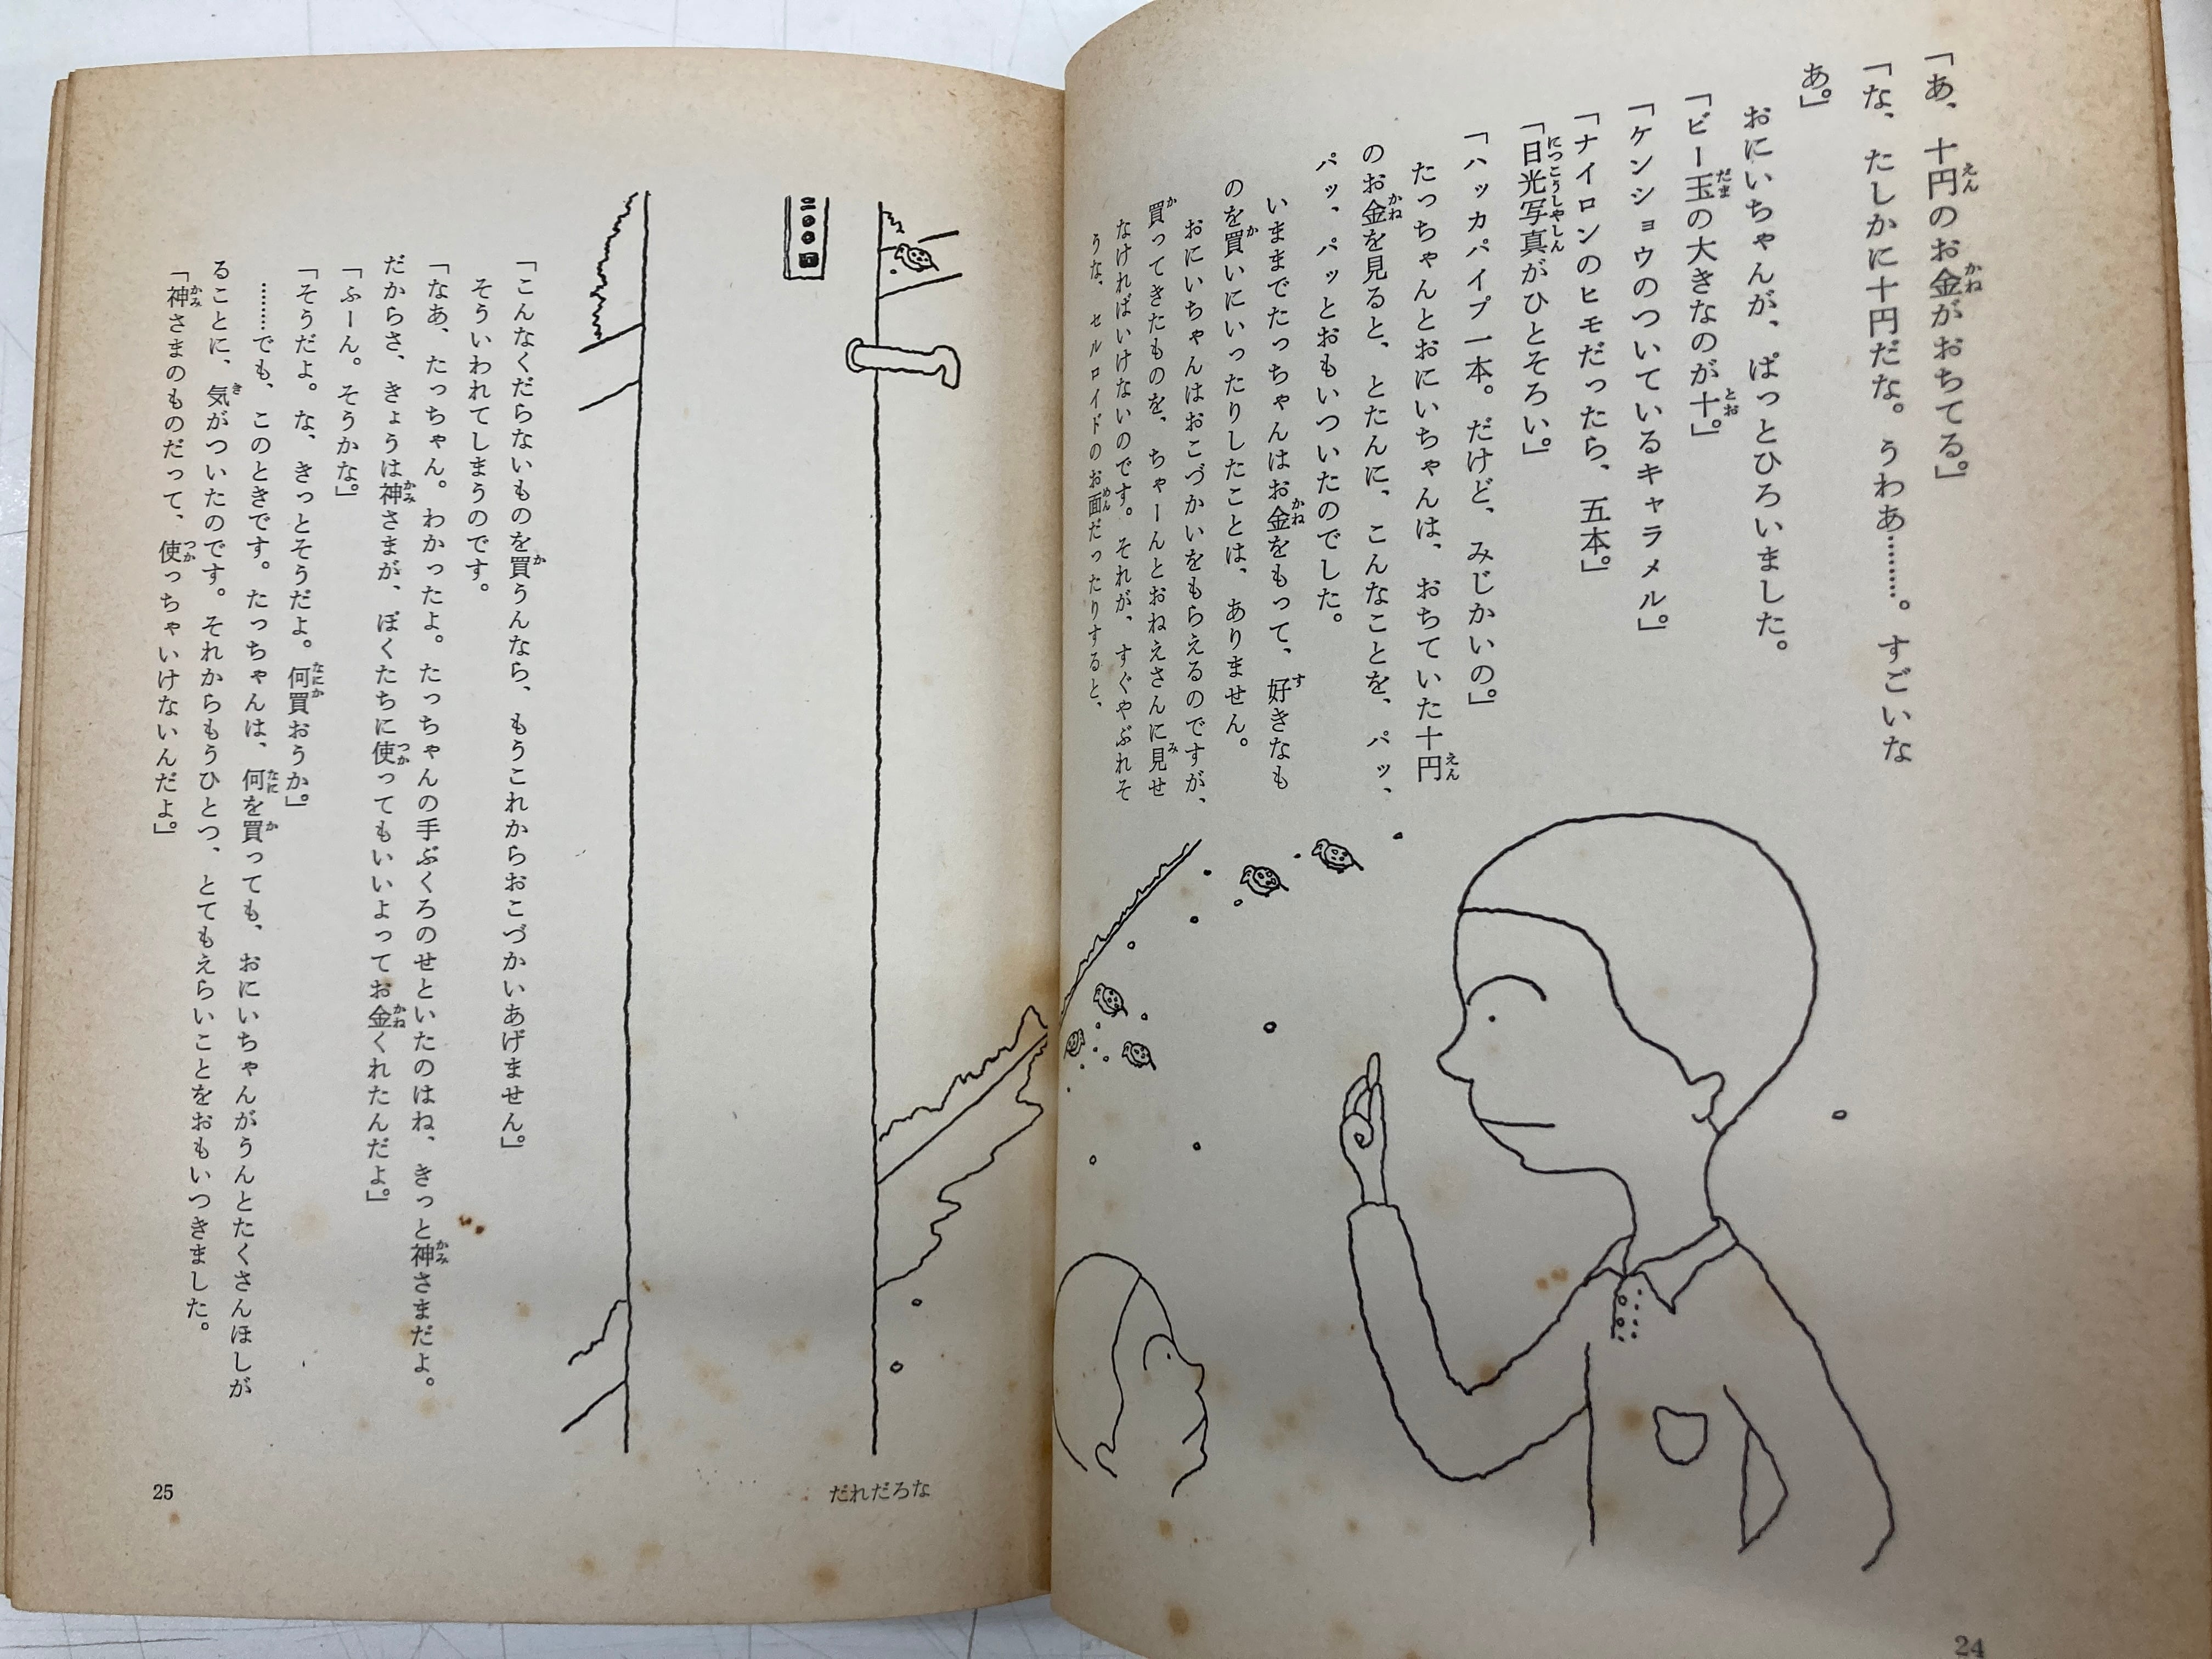 「あ、十円のお金がおちてる」
「な、たしかに十円だな。うわあ………。すごいな
あ。」
おにいちゃんが、ぱっとひろいました。
「ビー玉の大きなのが十。」
「ケンショウのついているキャラメル。」
「ナイロンのヒモだったら、五本。」
「日光写真がひとそろい。」
「ハッカパイプ一本。だけど、みじかいの。」
たっちゃんとおにいちゃんは、おちていた十円
のお金を見ると、とたんに、こんなことを、パッ、
パッ、パッとおもいついたのでした。
いままでたっちゃんはお金をもって、好きなも
のを買いにいったりしたことは、ありません。
おにいちゃんはおこづかいをもらえるのですが、
買ってきたものを、ちゃーんとおねえさんに見せ
なければいけないのです。それが、すぐやぶれそ
うな、セルロイドのお面だったりすると、
24
「こんなくだらないものを買うんなら、もうこれからおこづかいあげません。」
そういわれてしまうのです。
「なあ、たっちゃん。わかったよ。たっちゃんの手ぶくろのせといたのはね、きっと神さまだよ。
だからさ、きょうは神さまが、ぼくたちに使ってもいいよってお金くれたんだよ。」
「ふーん。そうかな。」
「そうだよ。な、きっとそうだよ。何買おうか。」
………でも、このときです。たっちゃんは、何を買っても、おにいちゃんがうんとたくさんほしが
ることに、気がついたのです。それからもうひとつ、とてもえらいことをおもいつきました。
「神さまのものだって、使っちゃいけないんだよ。」
だれだろな
25